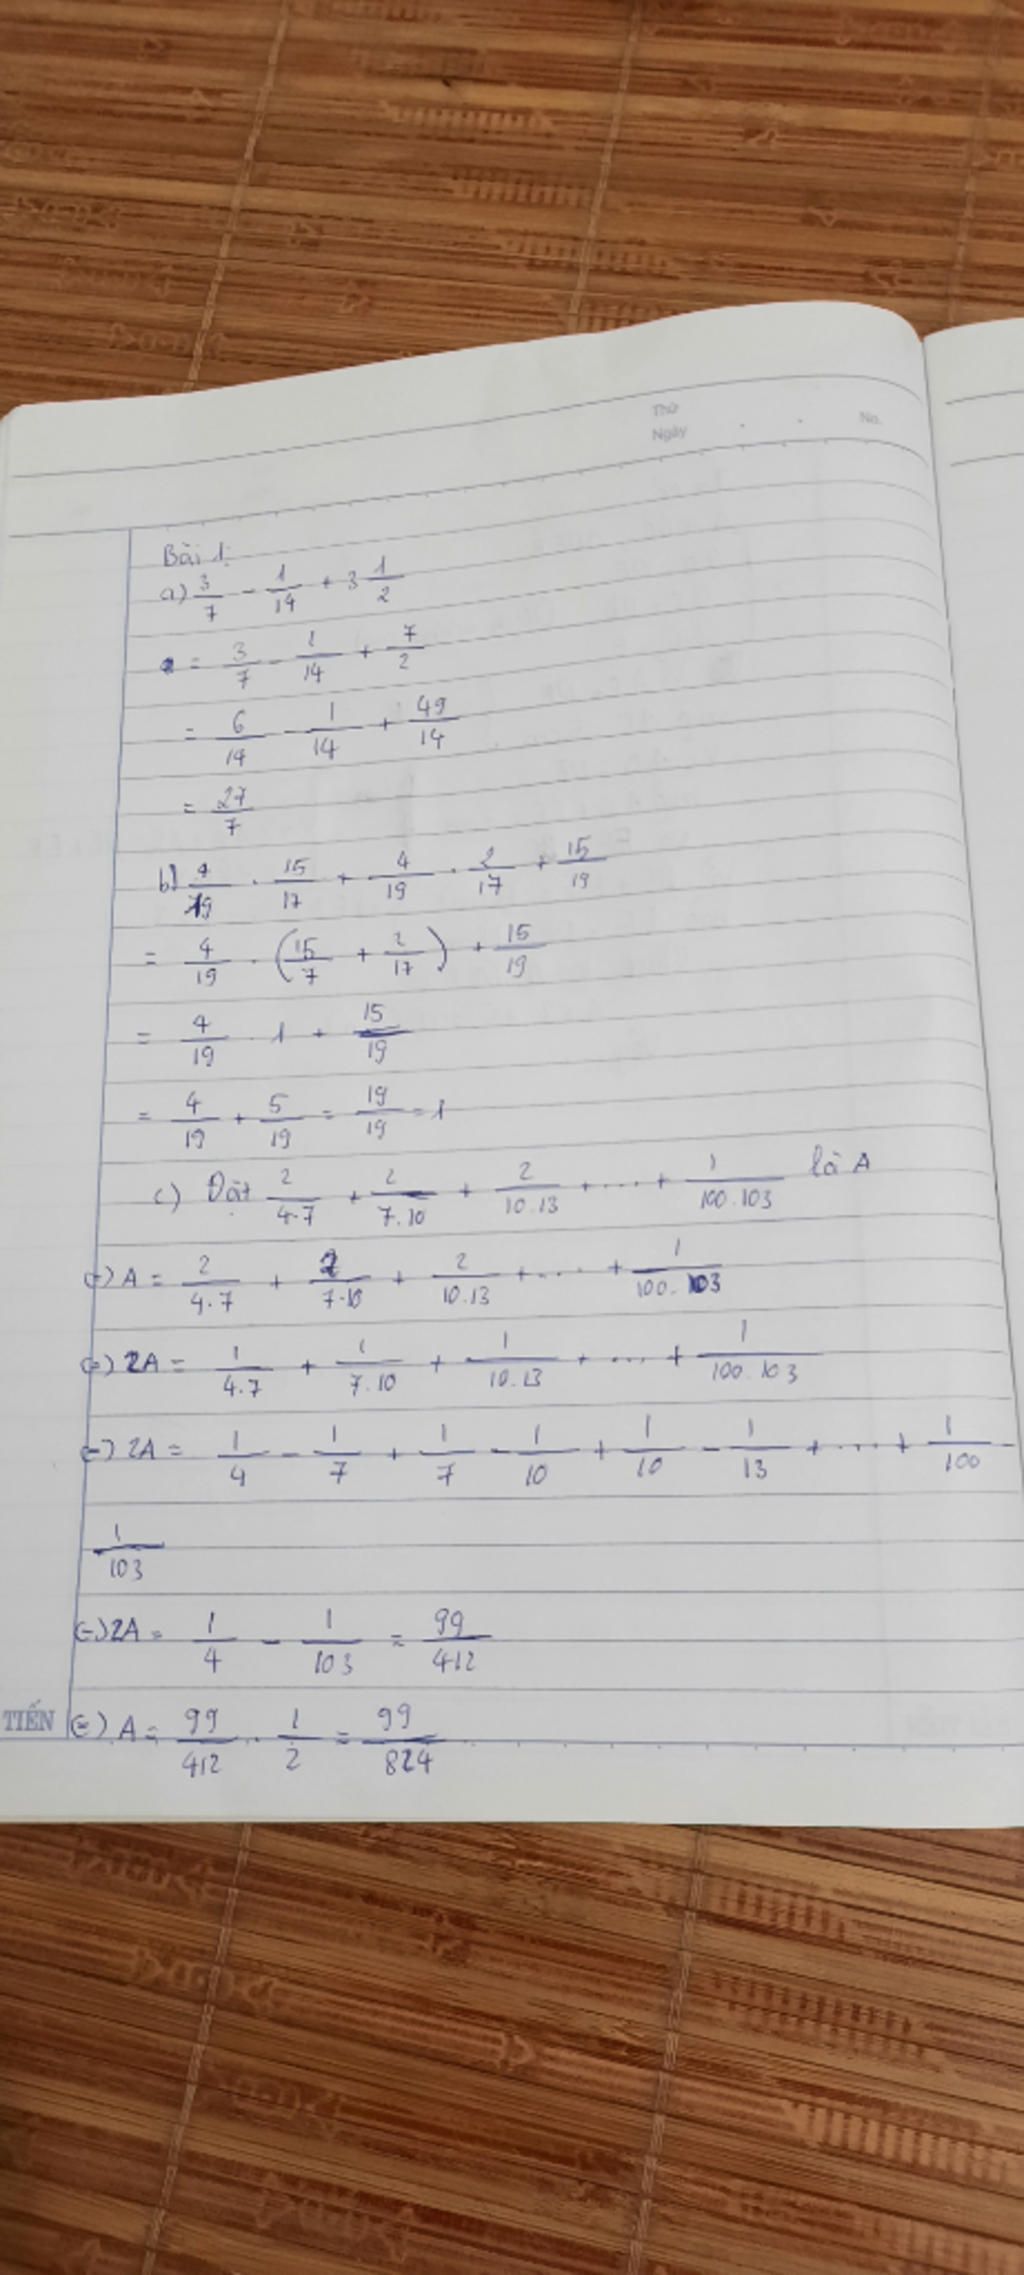 Thứ
Ngày . . No.
Bài 1:
a) 3/7 - 1/14 + 3 1/2
= 3/7 - 1/14 + 7/2
= 6/14 - 1/14 + 49/14
= 27/7
b) 4/19 . 15/17 + 4/19 . 2/17 + 15/19
= 4/19 . (15/7 + 2/17) + 15/19
= 4/19 . 1 + 15/19
= 4/19 + 5/19 = 19/19 = 1
c) Đặt 2/4.7 + 2/7.10 + 2/10.13 + .... + 1/100.103 là A
=) A = 2/4.7 + 2/7.10 + 2/10.13 + .... + 1/100.103
=) 2A = 1/4.7 + 1/7.10 + 1/10.13 + .... + 1/100.103
=) 2A = 1/4 - 1/7 + 1/7 - 1/10 + 1/10 - 1/13 + .... + 1/100 -
1/103
=) 2A = 1/4 - 1/103 = 99/412
TIẾN
=) A = 99/412 . 1/2 = 99/824